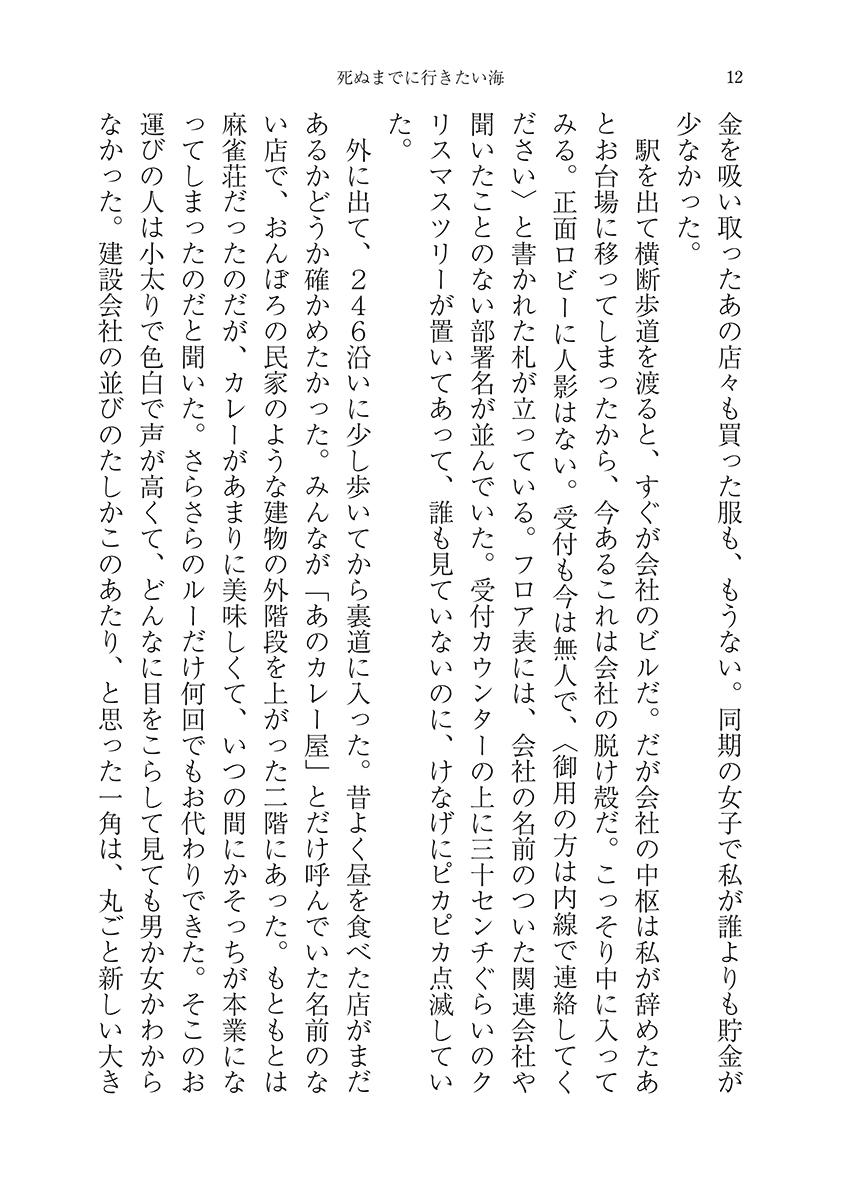 死ぬまでに行きたい海
12
金を吸い取ったあの店々も買った服も、もうない。同期の女子で私が誰よりも貯金が
少なかった。
　駅を出て横断歩道を渡ると、すぐが会社のビルだ。だが会社の中枢は私が辞めたあ
とお台場に移ってしまったから、今あるこれは会社の脱け殻だ。こっそり中に入って
みる。正面ロビーに人影はない。受付も今は無人で、〈御用の方は内線で連絡してく
ださい〉と書かれた札が立っている。フロア表には、会社の名前のついた関連会社や
聞いたことのない部署名が並んでいた。受付カウンターの上に三十センチぐらいのク
リスマスツリーが置いてあって、誰も見ていないのに、けなげにピカピカ点滅してい
た。
　外に出て、２４６沿いに少し歩いてから裏道に入った。昔よく昼を食べた店がまだ
あるかどうか確かめたかった。みんなが「あのカレー屋」とだけ呼んでいた名前のな
い店で、おんぼろの民家のような建物の外階段を上がった二階にあった。もともとは
麻雀荘だったのだが、カレーがあまりに美味しくて、いつの間にかそっちが本業にな
ってしまったのだと聞いた。さらさらのルーだけ何回でもお代わりできた。そこのお
運びの人は小太りで色白で声が高くて、どんなに目をこらして見ても男か女かわから
なかった。建設会社の並びのたしかこのあたり、と思った一角は、丸ごと新しい大き